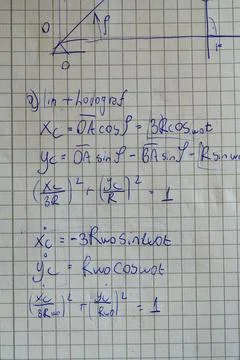 0
φ
0
a) lin + hodograf
x_C = \overline{OA} cosφ = 3R cosω₀t
y_C = \overline{OA} sinφ - \overline{BA} sinφ - R sinω
(x_C/3R)² + (y_C/R)² = 1
ẋ_C = -3Rω₀ sinω₀t
ẏ_C = Rω₀ cosω₀t
(ẋ_C/3Rω₀)² + (ẏ_C/Rω₀)² = 1